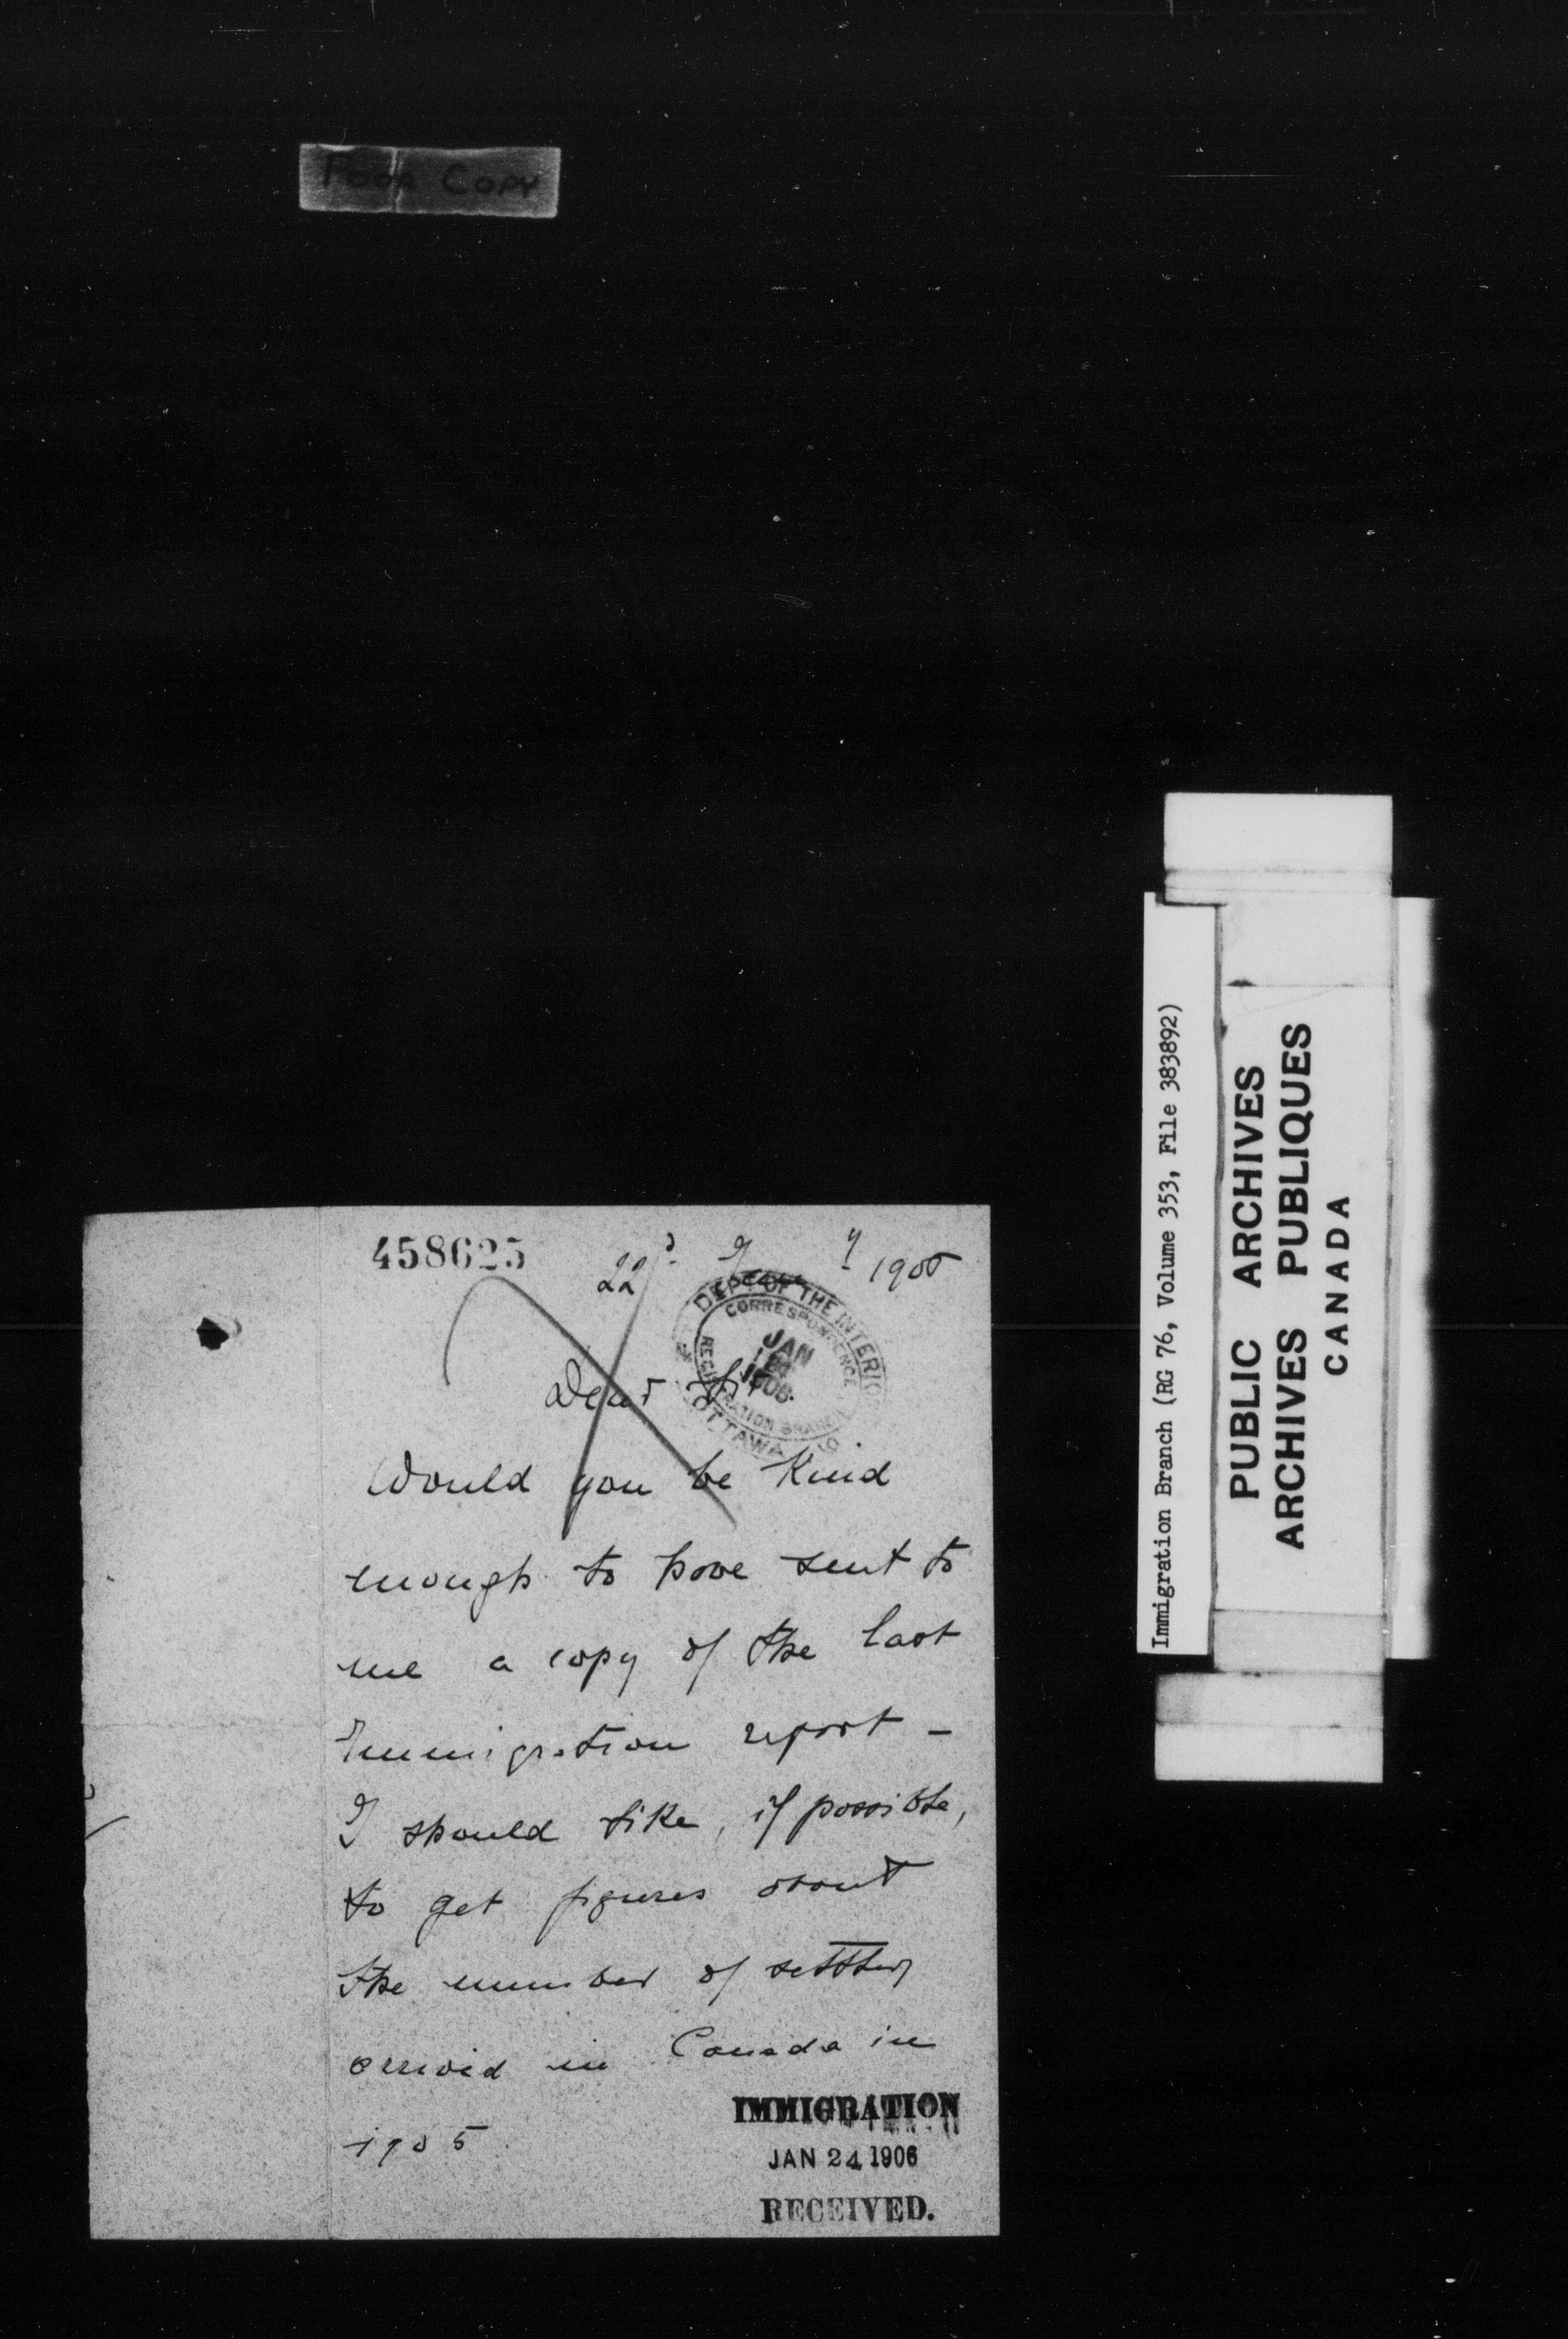 Poor Copy
458625
22d 1906
Dear Sir
DEPT OF THE INTERIOR
CORRESPONDENCE
JAN
1906
REGISTRATION BRANCH
OTTAWA
Would you be kind
enough to have sent to
me a copy of the last
Immigration report -
I should like, if possible,
to get figures about
the number of settlers
arrived in Canada in
1905
IMMIGRATION
JAN 24 1906
RECEIVED.
Immigration Branch (RG 76, Volume 353, File 383892)
PUBLIC ARCHIVES
ARCHIVES PUBLIQUES
CANADA